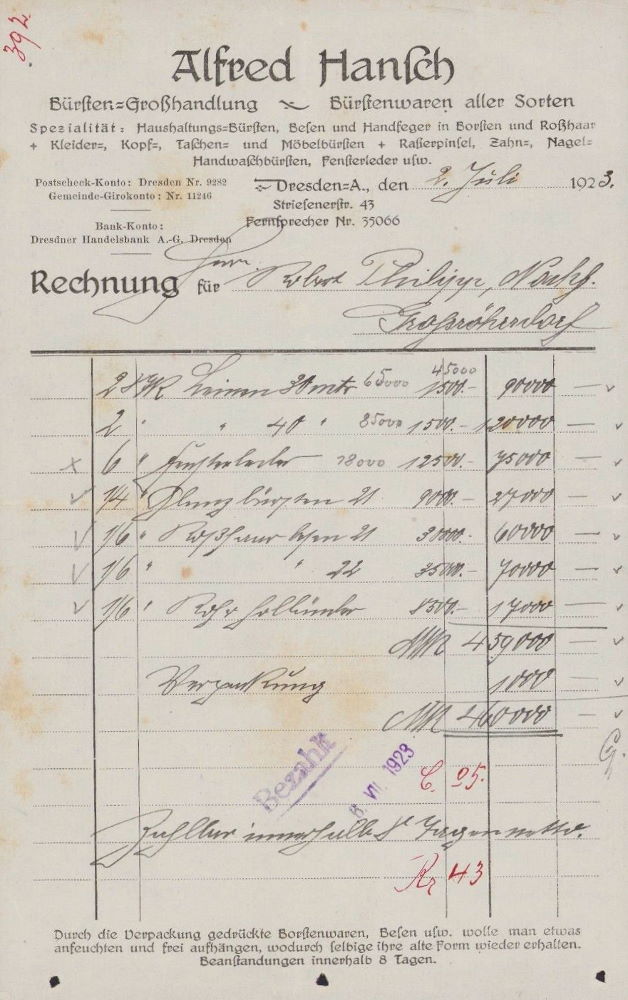 392
Alfred Hansch
Bürsten=Großhandlung Bürstenwaren aller Sorten
Spezialität: Haushaltungs=Bürsten, Besen und Handfeger in Borsten und Roßhaar
+ Kleider=, Kopf=, Taschen= und Möbelbürsten + Rasierpinsel, Zahn=, Nagel=
Handwaschbürsten, Fensterleder usw.
Postscheck-Konto: Dresden Nr. 9282
Gemeinde-Girokonto: Nr. 11246
Bank-Konto:
Dresdner Handelsbank A.-G. Dresden
Dresden=A., den 2. Juli 1923.
Striesenerstr. 43
Fernsprecher Nr. 35066
Rechnung für Herrn Robert Philipp, Nachf.
Großröhrsdorf
2 Leinen 30 mtr 65000 45000 1500.- 90000 —
2 " " 40 " 85000 1500.- 120000 —
6 " Fensterleder 18000 12500.- 75000 —
1/4 " Glanzbürsten 21 9000.- 27000 —
1/6 " Roßhaarbesen 21 30000.- 60000 —
1/6 " " 22 35000.- 70000 —
1/6 " 8500.- 17000 —
459000 —
Verpackung 1000 —
460000 —
Bezahlt
VII. 1923
C. 95.
Zahlbar innerhalb 8 Tagen netto.
43
Durch die Verpackung gedrückte Borstenwaren, Besen usw. wolle man etwas
anfeuchten und frei aufhängen, wodurch selbige ihre alte Form wieder erhalten.
Beanstandungen innerhalb 8 Tagen.